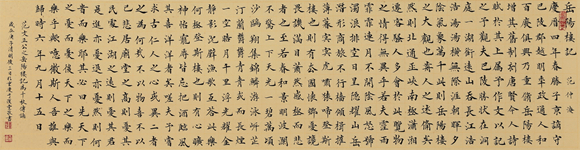 岳陽樓記 范仲淹
慶曆四年春滕子京謫守
巴陵郡越明年政通人和
百廢俱興乃重修岳陽樓
增其舊制刻唐賢今人詩
賦於其上屬予作文以記
之予觀夫巴陵勝狀在洞
庭一湖銜遠山吞長江浩
浩湯湯橫無際涯朝暉夕
陰氣象萬千此則岳陽樓
之大觀也前人之述備矣
然則北通巫峽南極瀟湘
遷客騷人多會於此覽物
之情得無異乎若夫霪雨
霏霏連月不開陰風怒號
濁浪排空日星隱耀山岳
潛形商旅不行檣傾楫摧
薄暮冥冥虎嘯猿啼登斯
樓也則有去國懷鄉憂讒
畏譏滿目蕭然感極而悲
者矣至若春和景明波瀾
不驚上下天光一碧萬頃
沙鷗翔集錦鱗游泳岸芷
汀蘭郁郁青青而或長煙
一空皓月千里浮光耀金
靜影沉璧漁歌互答此樂
何極登斯樓也則有心曠
神怡寵辱皆忘把酒臨風
其喜洋洋者矣嗟夫予嘗
求古仁人之心或異二者
之為何哉不以物喜不以
己悲居廟堂之高則憂其
民處江湖之遠則憂其君
是進亦憂退亦憂然則何
時而樂耶其必曰先天下之憂
而憂後天下之樂而
樂歟噫微斯人吾誰與
歸時六年九月十五日